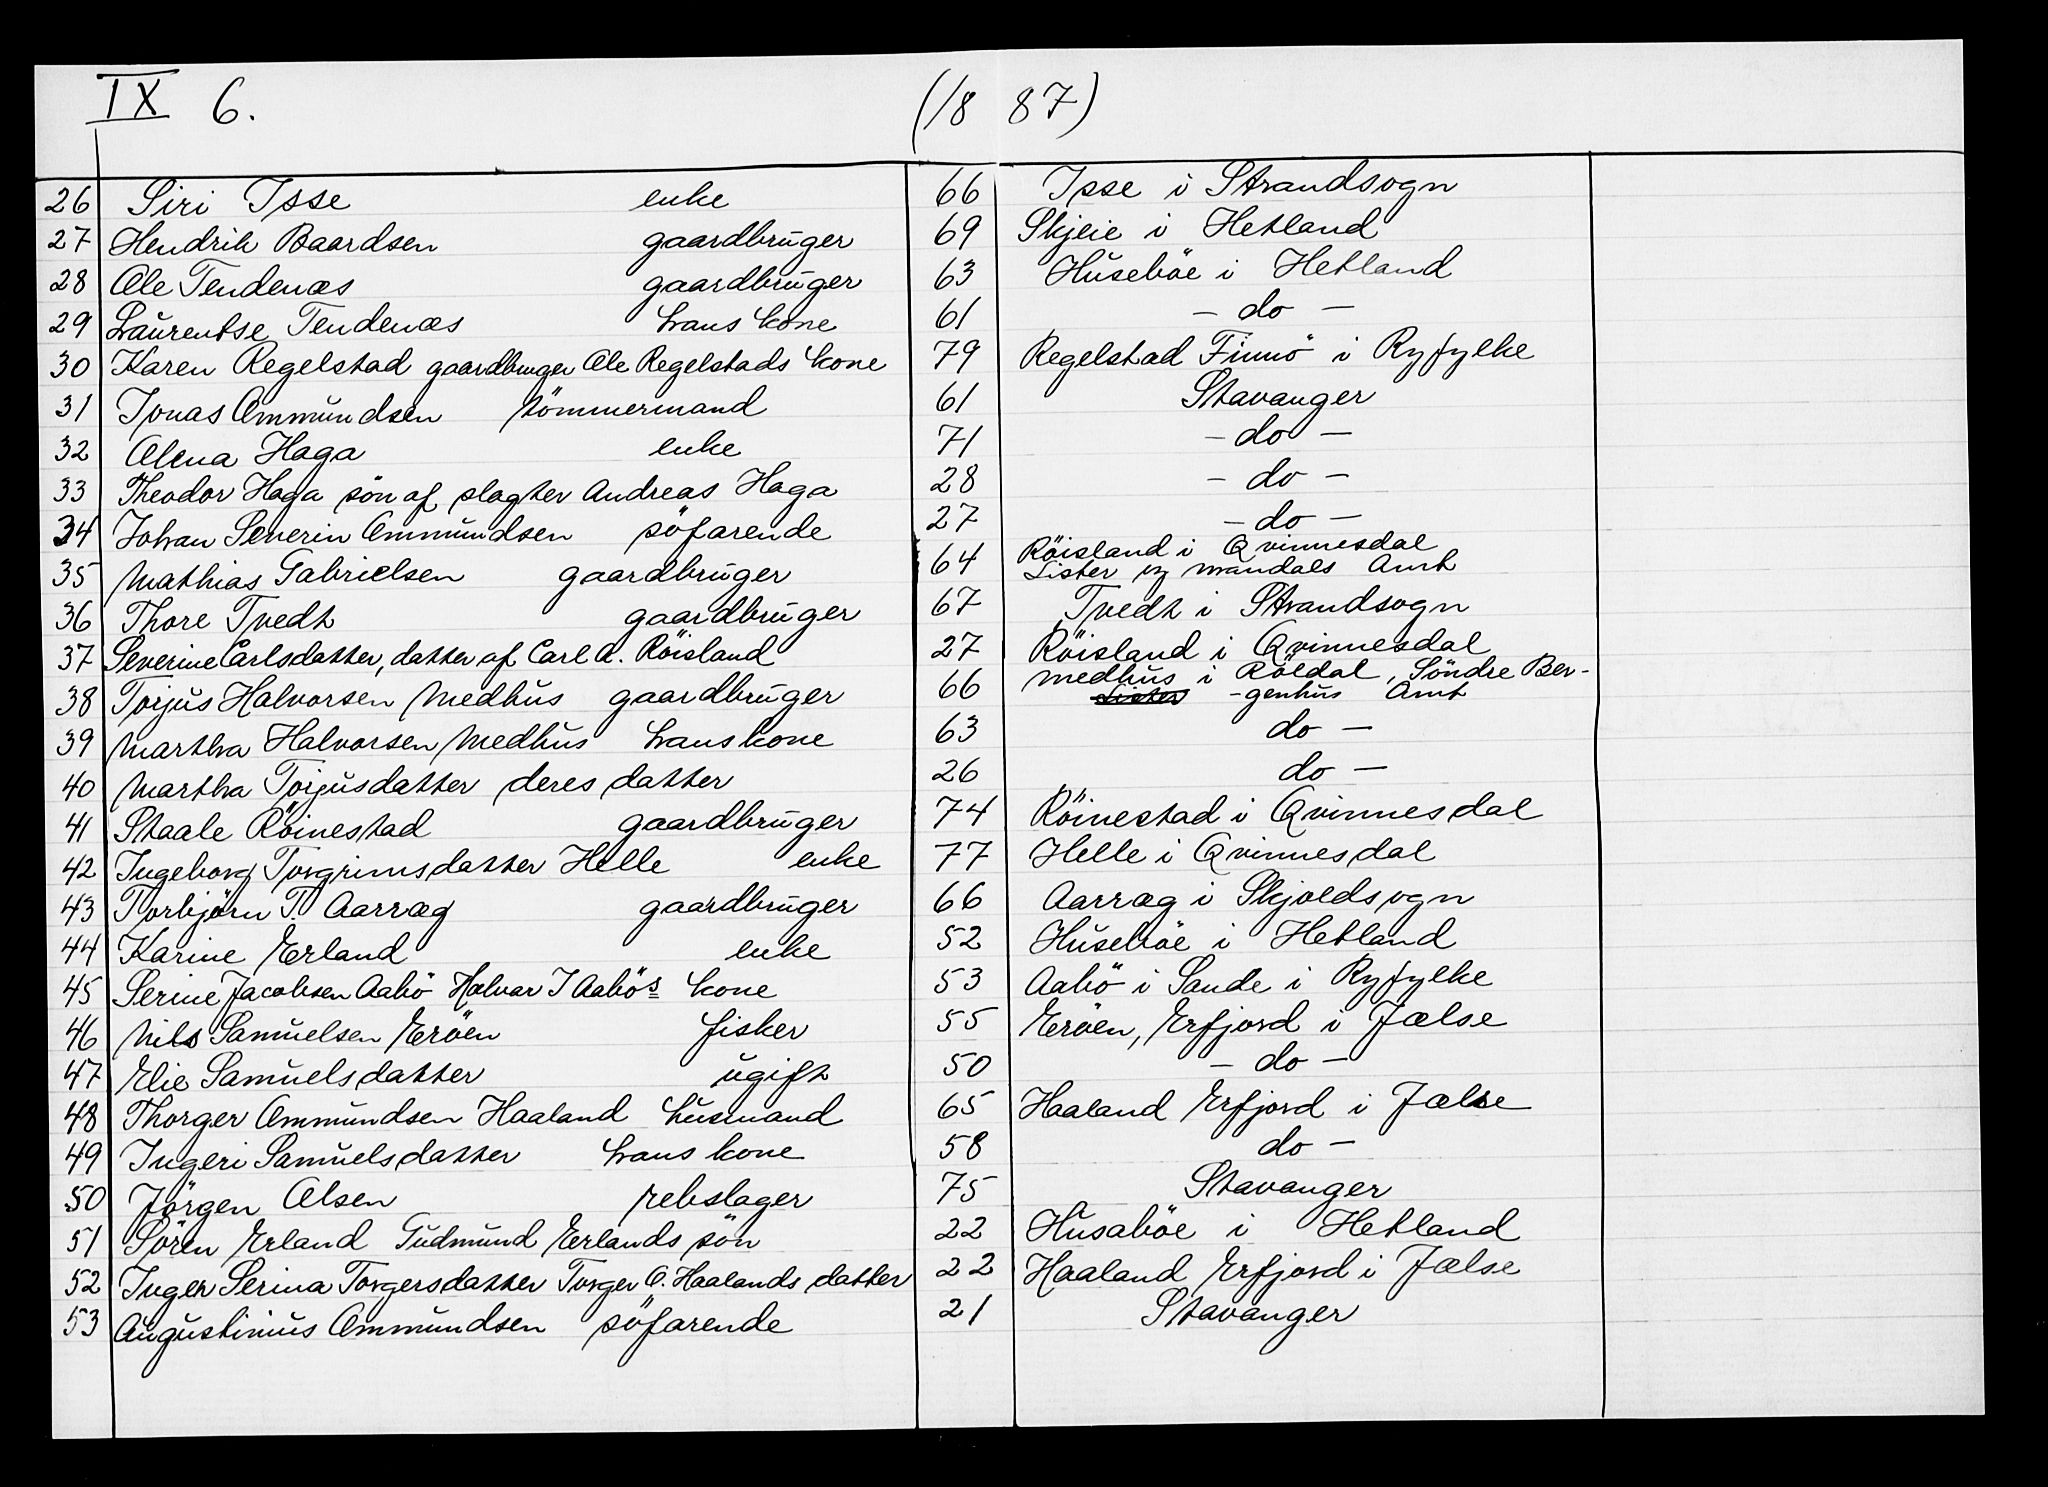 IX 6. (18 87)
26 Siri Idse enke 66 Idse i Strandsogn
27 Hendrik Baardsen gaardbruger 69 Skjeie i Hetland
28 Ole Tendenæs gaardbruger 63 Huseböe i Hetland
29 Laurentse Tendenæs hans kone 61 - do -
30 Karen Regelstad gaardbruger Ole Regelstads kone 79 Regelstad Finnö i Ryfylke
31 Jonas Ommundsen tömmermand 61 Stavanger
32 Olena Haga enke 71 - do -
33 Theodor Haga sön af slagter Andreas Haga 28 - do -
34 Johan Severin Ommundsen söfarende 27 - do -
35 Mathias Gabrielsen gaardbruger 64 Röisland i Qvinnesdal
Lister og Mandals Amt
36 Thore Tvedt gaardbruger 67 Tvedt i Strandsogn
37 Severine Carlsdatter, datter af Carl A. Röisland 27 Röisland i Qvinnesdal
38 Torjus Halvorsen Medhus gaardbruger 66 Medhus i Röldal, Söndre Ber-
Lister -genhus Amt
39 Martha Halvorsen Medhus hans kone 63 do -
40 Martha Torjusdatter deres datter 26 do -
41 Staale Röinestad gaardbruger 74 Röinestad i Qvinnesdal
42 Ingeborg Torgrimsdatter Helle enke 77 Helle i Qvinnesdal
43 Torbjörn T. Aarræg gaardbruger 66 Aarræg i Skjoldsogn
44 Karine Erland enke 52 Huseböe i Hetland
45 Serine Jacobsen Aabö Halvar J Aabös kone 53 Aabö i Sande i Ryfylke
46 Nils Samuelsen Eröen fisker 55 Eröen, Erfjord i Jælse
47 Elie Samuelsdatter ugift 50 - do -
48 Thorger Ommundsen Haaland husmand 65 Haaland Erfjord i Jælse
49 Ingeri Samuelsdatter hans kone 58 do -
50 Jörgen Olsen rebslager 75 Stavanger
51 Sören Erland Gudmund Erlands sön 22 Husaböe i Hetland
52 Inger Serina Torgersdatter Torger O. Haalands datter 22 Haaland Erfjord i Jælse
53 Augustinius Ommundsen söfarende 21 Stavanger